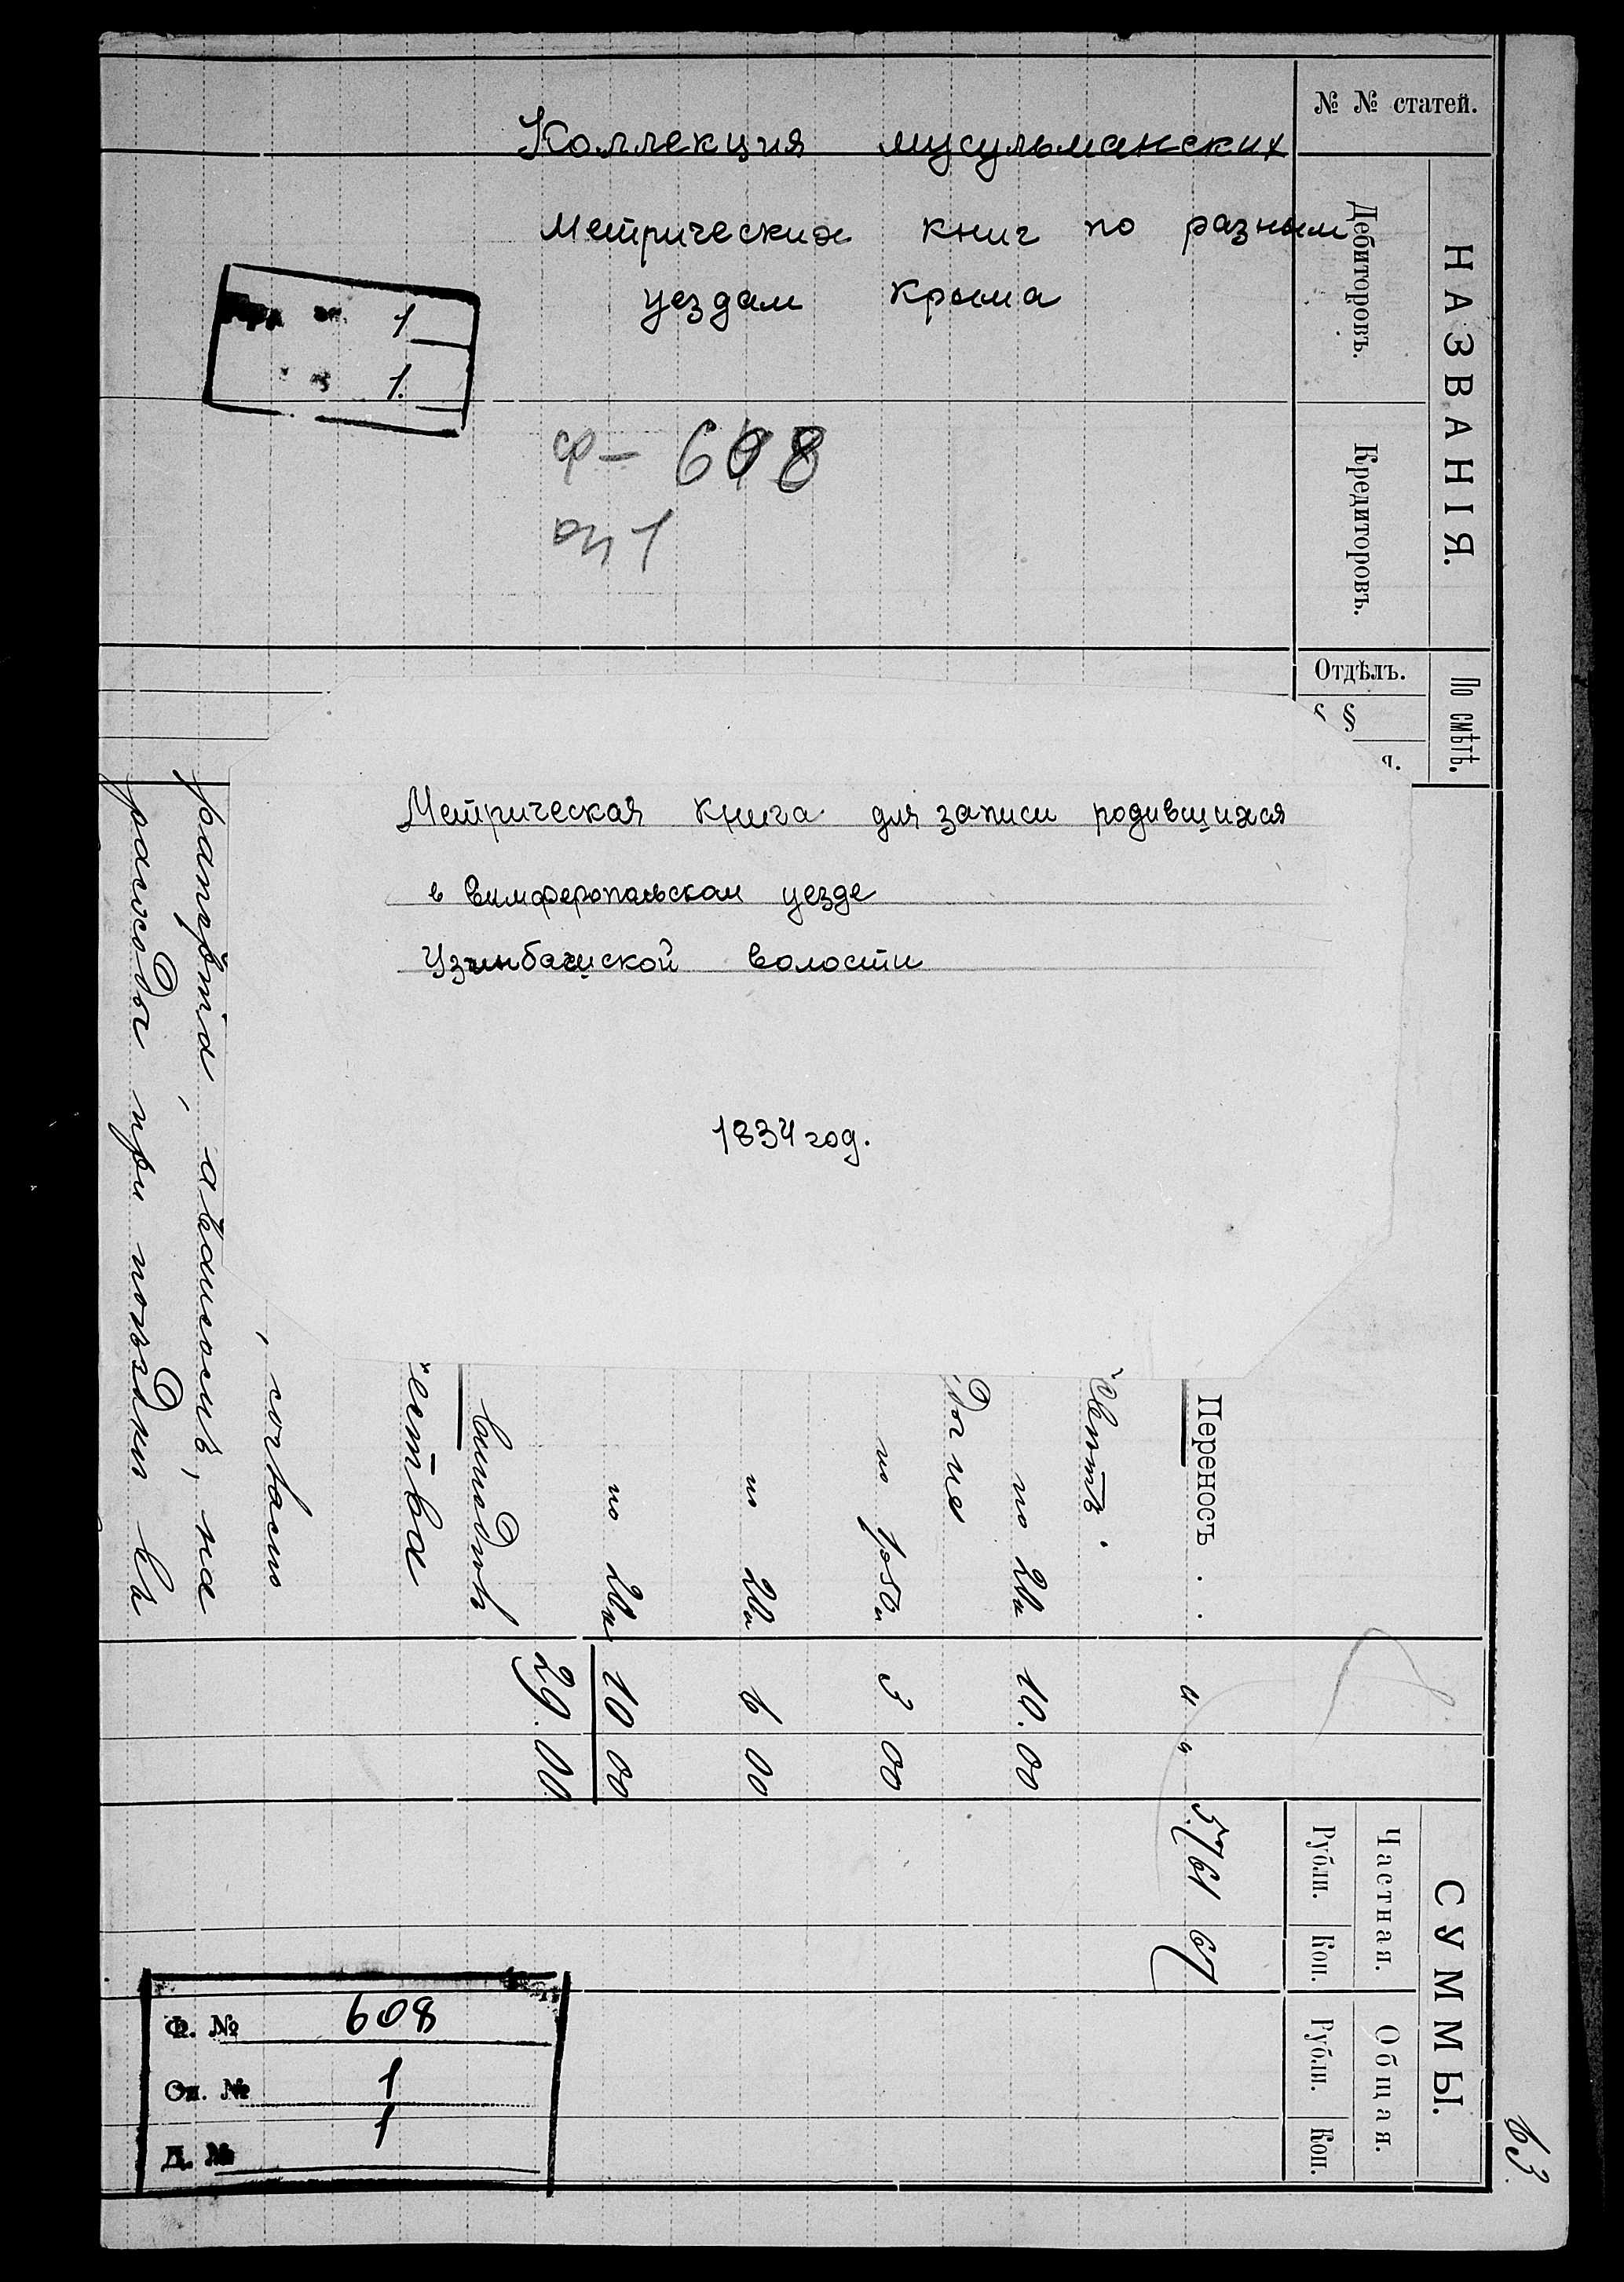 Коллекция мусульманских
метрических книг по разным
уездам Крыма
1
1.
ф- 608
оп 1
Метрическая книга для записи родившихся
в Симферопольском уезде
Узинбашской волости
1834 год.
Ф. № 608
Оп. № 1
Д. № 1
63
№ № статей.
НАЗВАНІЯ.
Дебиторовъ.
Кредиторовъ.
По смѣтѣ.
Отдѣлъ.
§
СУММЫ.
Частная.
Общая.
Рубли.
Коп.
Рубли.
Коп.
Переносъ . . " " 5761 67
по 10. 00
по 3 00
по 6 00
по 10 00
29. 00.
рапорта, на
расходы при поѣздки въ